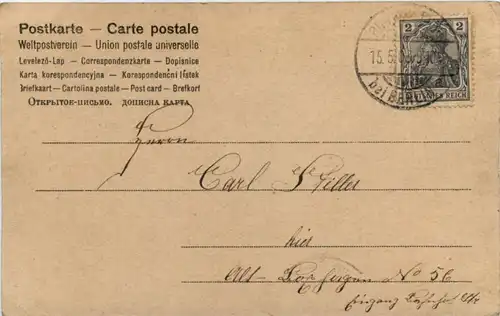 Postkarte — Carte postale
Weltpostverein — Union postale universelle
Levelező-Lap — Correspondenzkarte — Dopisnice
Karta korespondencyjna — Korespondenční lístek
Briefkaart — Cartolina postale — Post card — Brefkort
Открытое-письмо. дописна карта
2 2
15.5.
bei BERLIN
Herrn
Carl
hier
Alt- No 56
Eingang